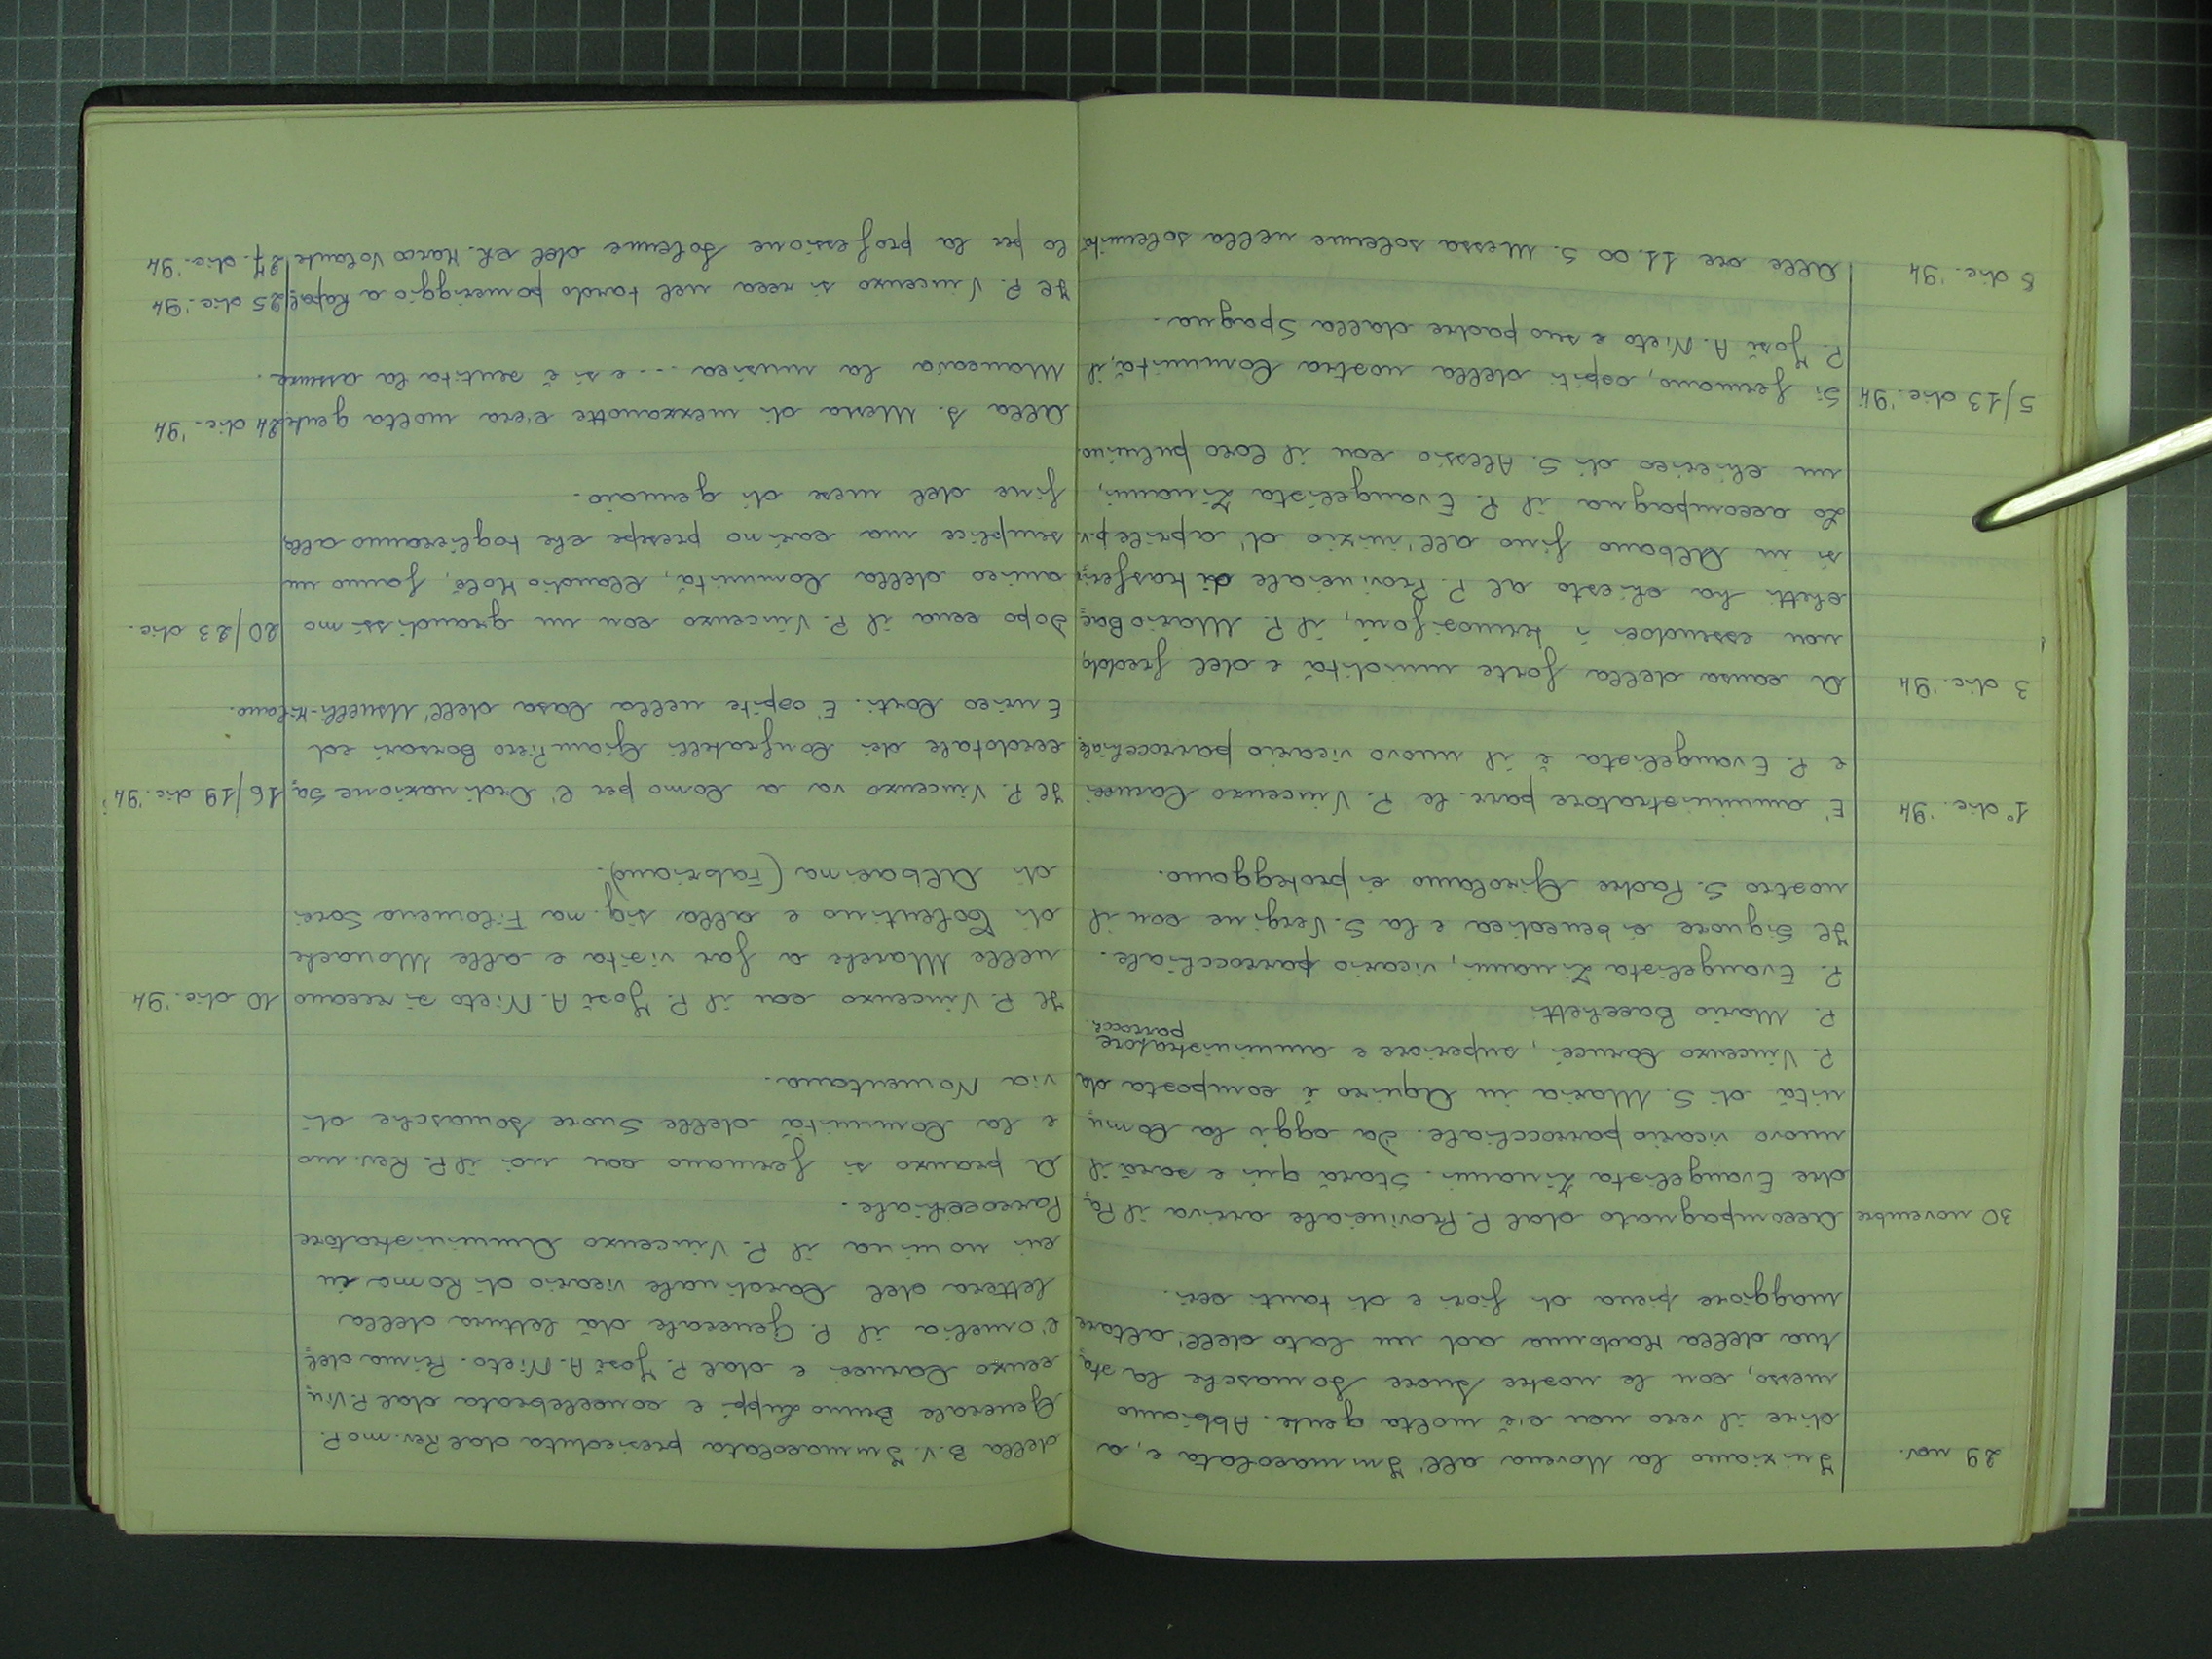 29 nov. Iniziamo la Novena all'Immacolata e, a
dire il vero non c'è molta gente. Abbiamo
messo, con le nostre suore somasche la sta
tua della Madonna ad un lato dell'altare
maggiore piena di fiori e di tanti ceri.
30 novembre Accompagnato dal P. Provinciale arriva il Pa
dre Evangelista Zinanni. Starà qui e sarà il
nuovo vicario parrocchiale. Da oggi la Comu
nità di S. Maria in Aquiro è composta da
P. Vincenzo Carucci, superiore e amministratore
parrocch.
P. Mario Bacchetti
P. Evangelista Zinanni, vicario parrocchiale.
Il Signore ci benedica e la S. Vergine con il
nostro S. Padre Girolamo ci proteggano.
1° dic. '94 E' amministratore parr.le P. Vincenzo Carucci
e P. Evangelista è il nuovo vicario parrocchiale
3 dic. '94 A causa della forte umidità e del freddo,
non essendoci i termosifoni, il P. Mario Bac
chetti ha chiesto al P. Provinciale di trasferir
si in Albano fino all'inizio d'aprile p.v.
Lo accompagna il P. Evangelista Zinanni,
un chierico di S. Alessio con il loro pulmino.
5/13 dic. '94 Si fermano, ospiti della nostra Comunità, il
P. José A. Nieto e suo padre dalla Spagna.
8 dic. '94 Alle ore 11.00 S. Messa solenne nella solennità
della B.V. Immacolata presieduta dal Rev.mo P.
Generale Bruno Luppi e concelebrata dal P. Vin
cenzo Carucci e dal P. José A. Nieto. Prima del
l'omelia il P. Generale dà lettura della
lettera del Cardinale vicario di Roma in
cui nomina il P. Vincenzo Amministratore
Parrocchiale.
A pranzo si fermano con noi il P. Rev.mo
e la Comunità delle Suore somasche di
via Nomentana.
10 dic. '94 Il P. Vincenzo con il P. José A. Nieto si recano
nelle Marche a far visita e alle Monache
di Tolentino e alla sig.ma Filomena Sorci
di Albacina (Fabriano).
16/19 dic. '94 Il P. Vincenzo va a Como per l'Ordinazione Sa
cerdotale dei Confratelli Gian Piero Borsari ed
Enrico Corti. E' ospite nella Casa dell'Usuelli-Milano.
20/23 dic. Dopo cena il P. Vincenzo con un grandissimo
amico della Comunità, Claudio Molè, fanno un
semplice ma carino presepe che toglieranno alla
fine del mese di gennaio.
24 dic. '94 Alla S. Messa di mezzanotte c'era molta gente
Mancava la musica ... e si è sentita la assenza.
25 dic. '94 Il P. Vincenzo si reca nel tardo pomeriggio a Rapal
27. dic. '94 lo per la professione solenne del ch. Marco Volante